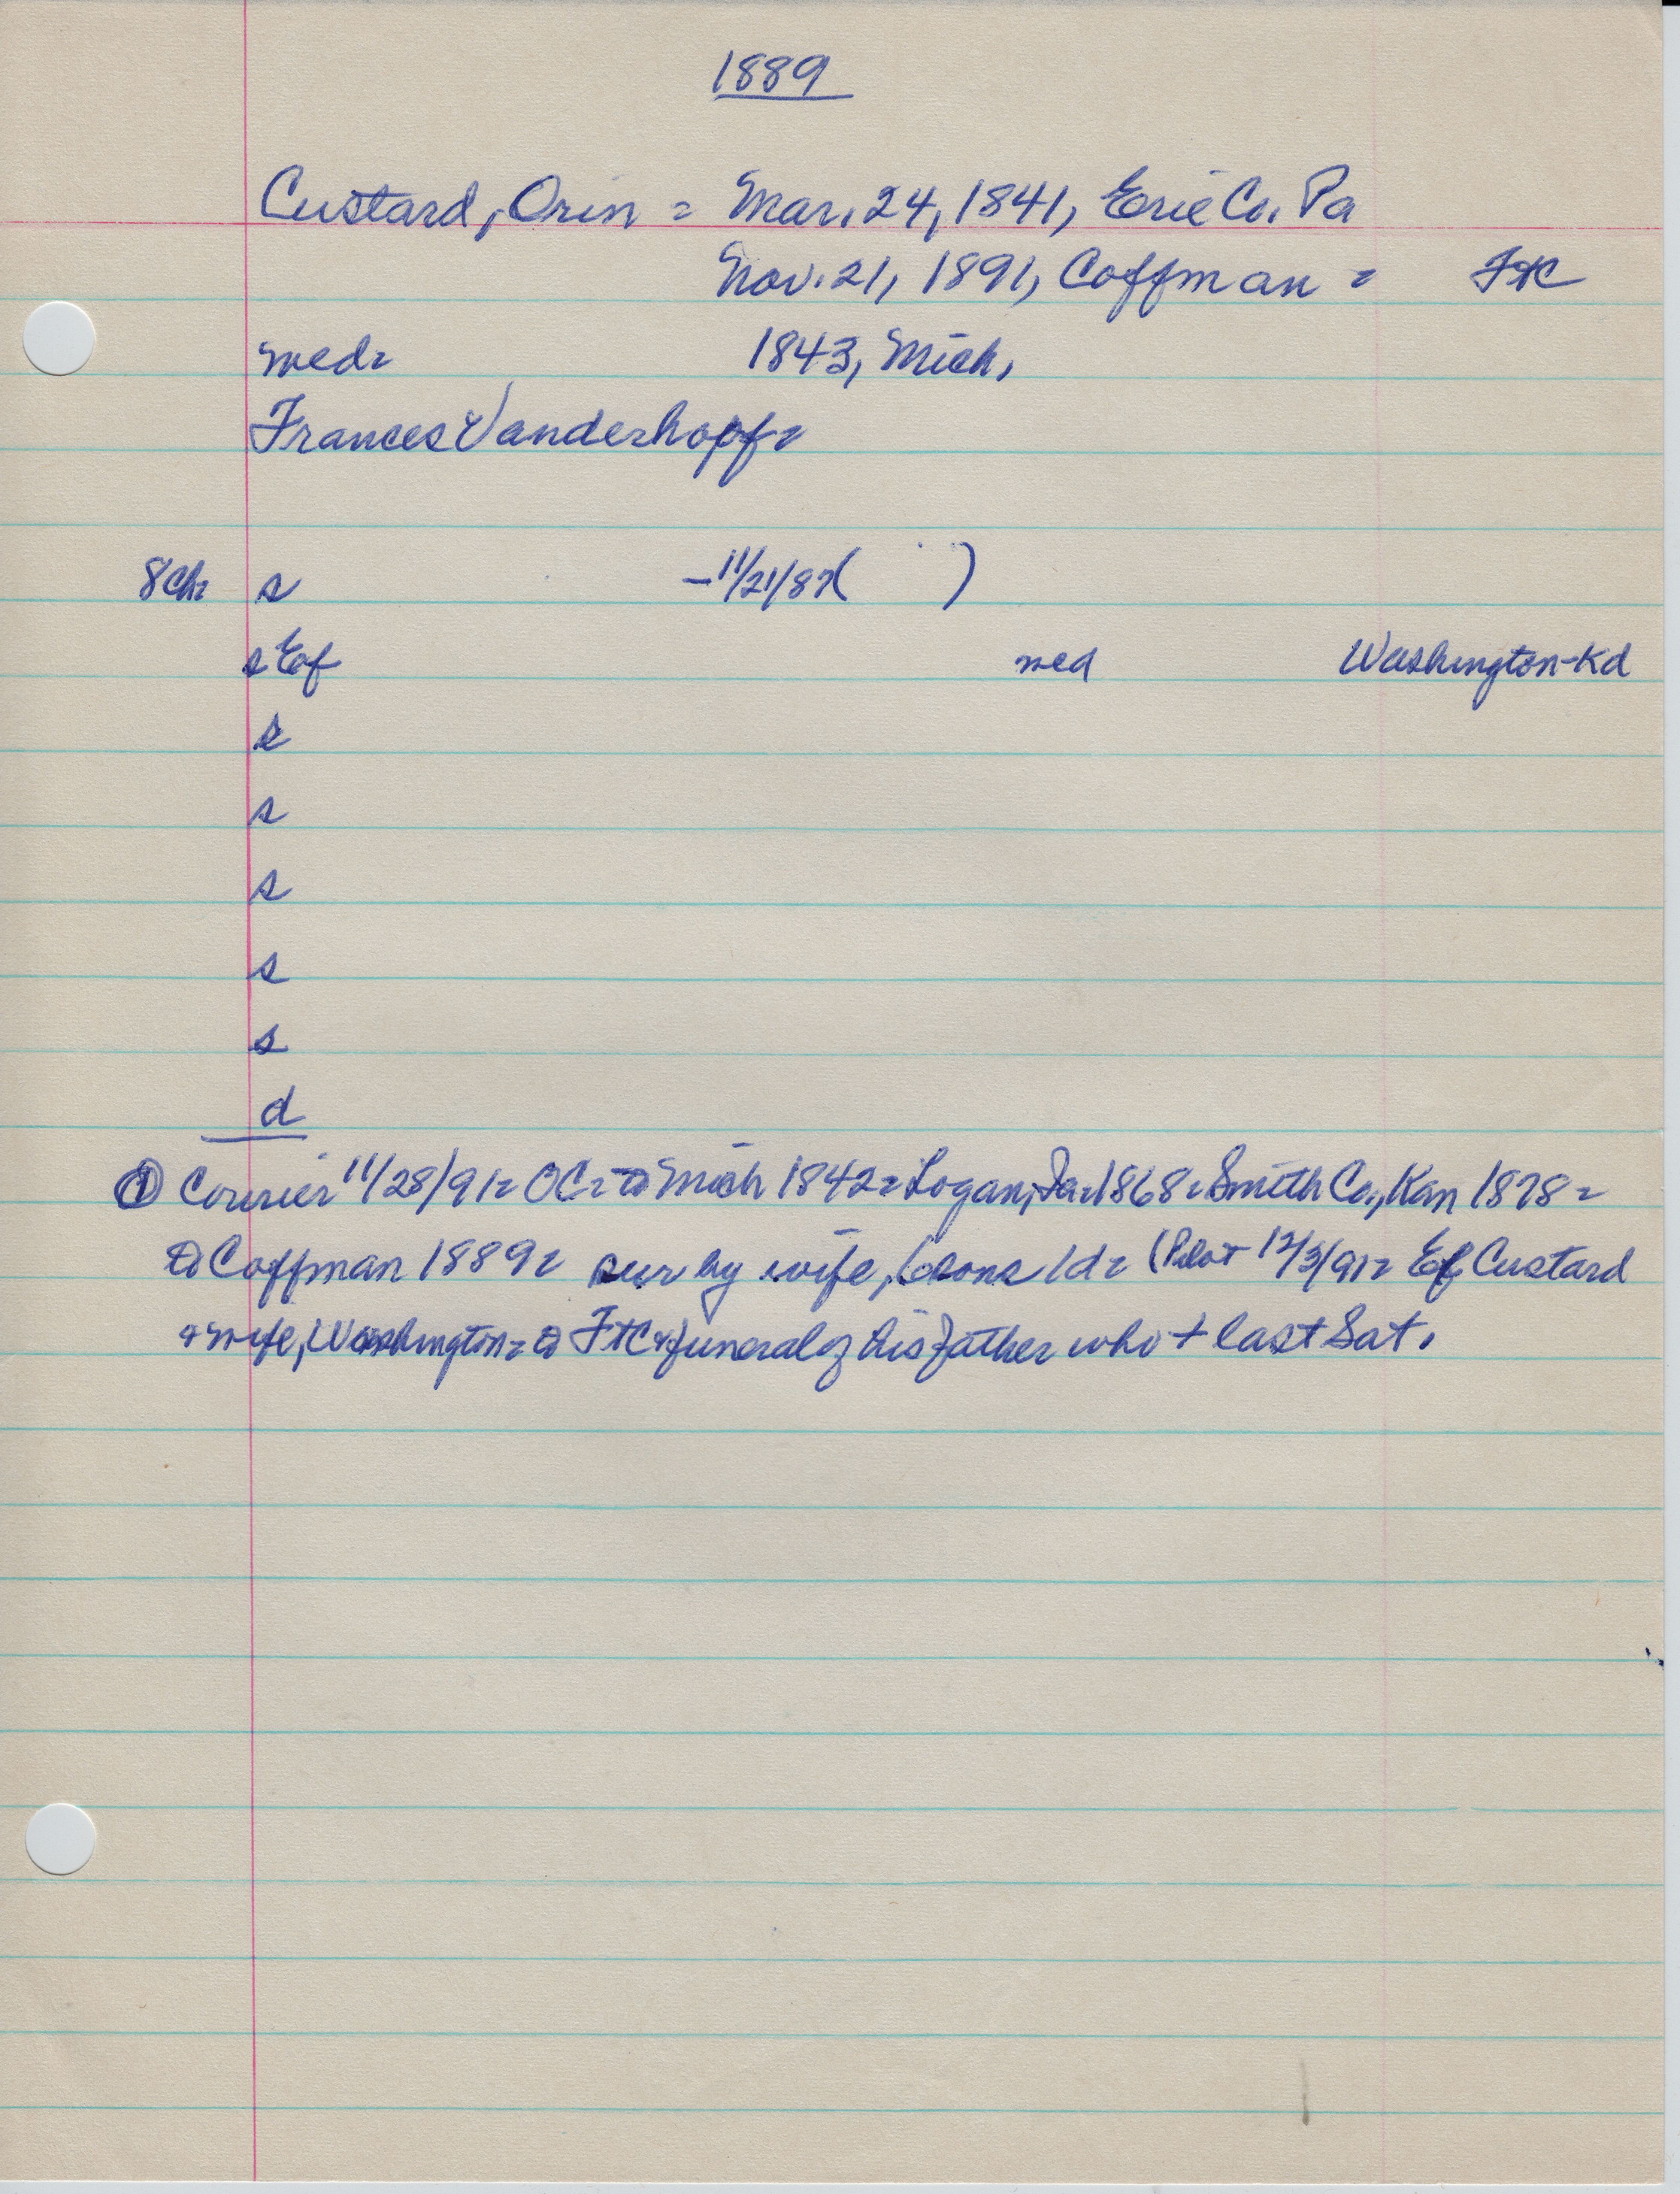 1889
Custard, Orin = Mar. 24, 1841, Erie Co. Pa
Nov. 21, 1891, Coffman = FtC
med= 1843, Mich.
Frances Vanderhopf=
8 Ch= s -11/21/87( )
s Eof med Washington-Kd
s
s
s
s
s
d
① Courier 11/28/91= OC= to Mich 1842= Logan, Ia=1868= Smith Co., Kan 1878=
to Coffman 1889= sur by wife, 6 sons 1d= (Pilot 12/3/91= Eof Custard
+ wife, Washington= to FtC + funeral of his father who + last Sat.